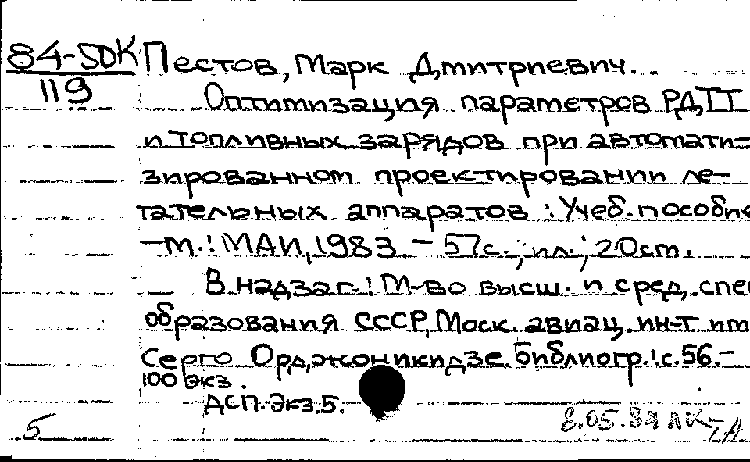 84-SDK
119
Пестов, Марк Дмитриевич.
Оптимизация параметров РДТТ
и топливных зарядов при автомати=
зированном проектировании ле-
тательных аппаратов : Учеб. пособие
-М.: МАИ, 1983 - 57с.; ил.; 20см.
В надзаг.: М-во высш. и сред. спец
образования СССР, Моск. авиац. ин-т им
Серго Орджоникидзе. Библиогр.: с.56.-
100 экз.
ДСП. Экз.5.
5
8.05.84